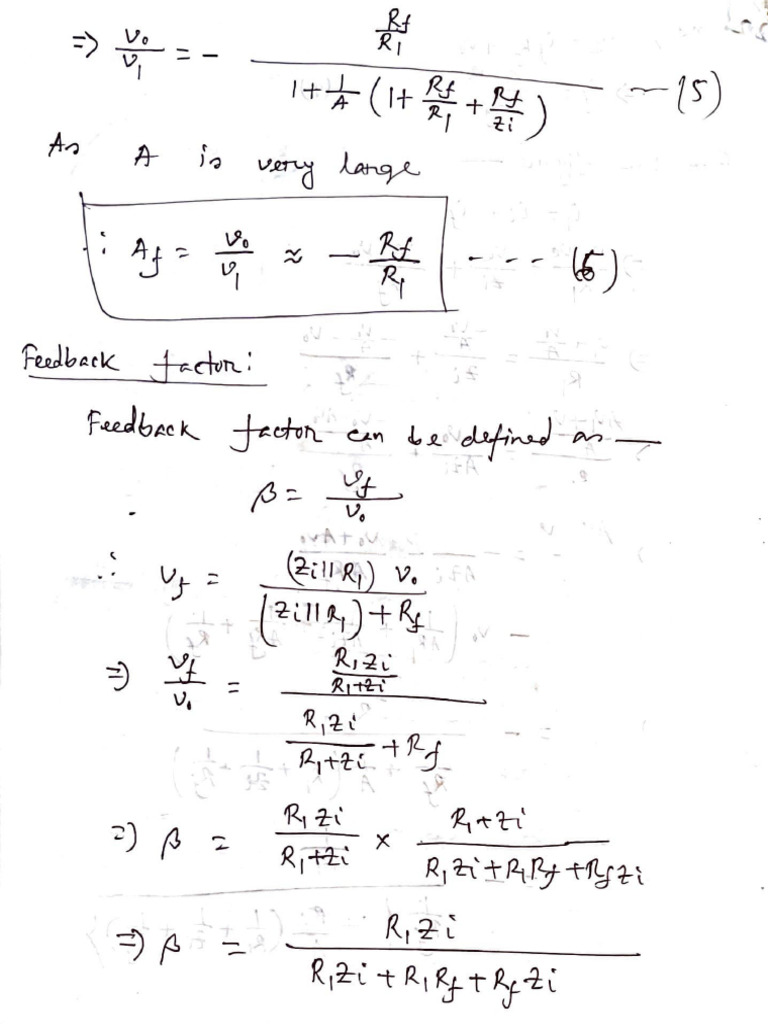 ⇒ v₀/v₁ = - (Rf/R₁) / (1 + 1/A (1 + Rf/R₁ + Rf/zi)) — (5)
As A is very large
∴ Af = v₀/v₁ ≈ - Rf/R₁ - - - - (6)
Feedback factor:
Feedback factor can be defined as —
β = vf/v₀
∴ vf = (Zi||R₁) v₀ / ((Zi||R₁) + Rf)
⇒ vf/v₀ = (R₁zi/(R₁+zi)) / (R₁zi/(R₁+zi) + Rf)
⇒ β = R₁zi/(R₁+zi) × (R₁+zi)/(R₁zi + R₁Rf + Rfzi)
⇒ β = R₁zi/(R₁zi + R₁Rf + Rfzi)